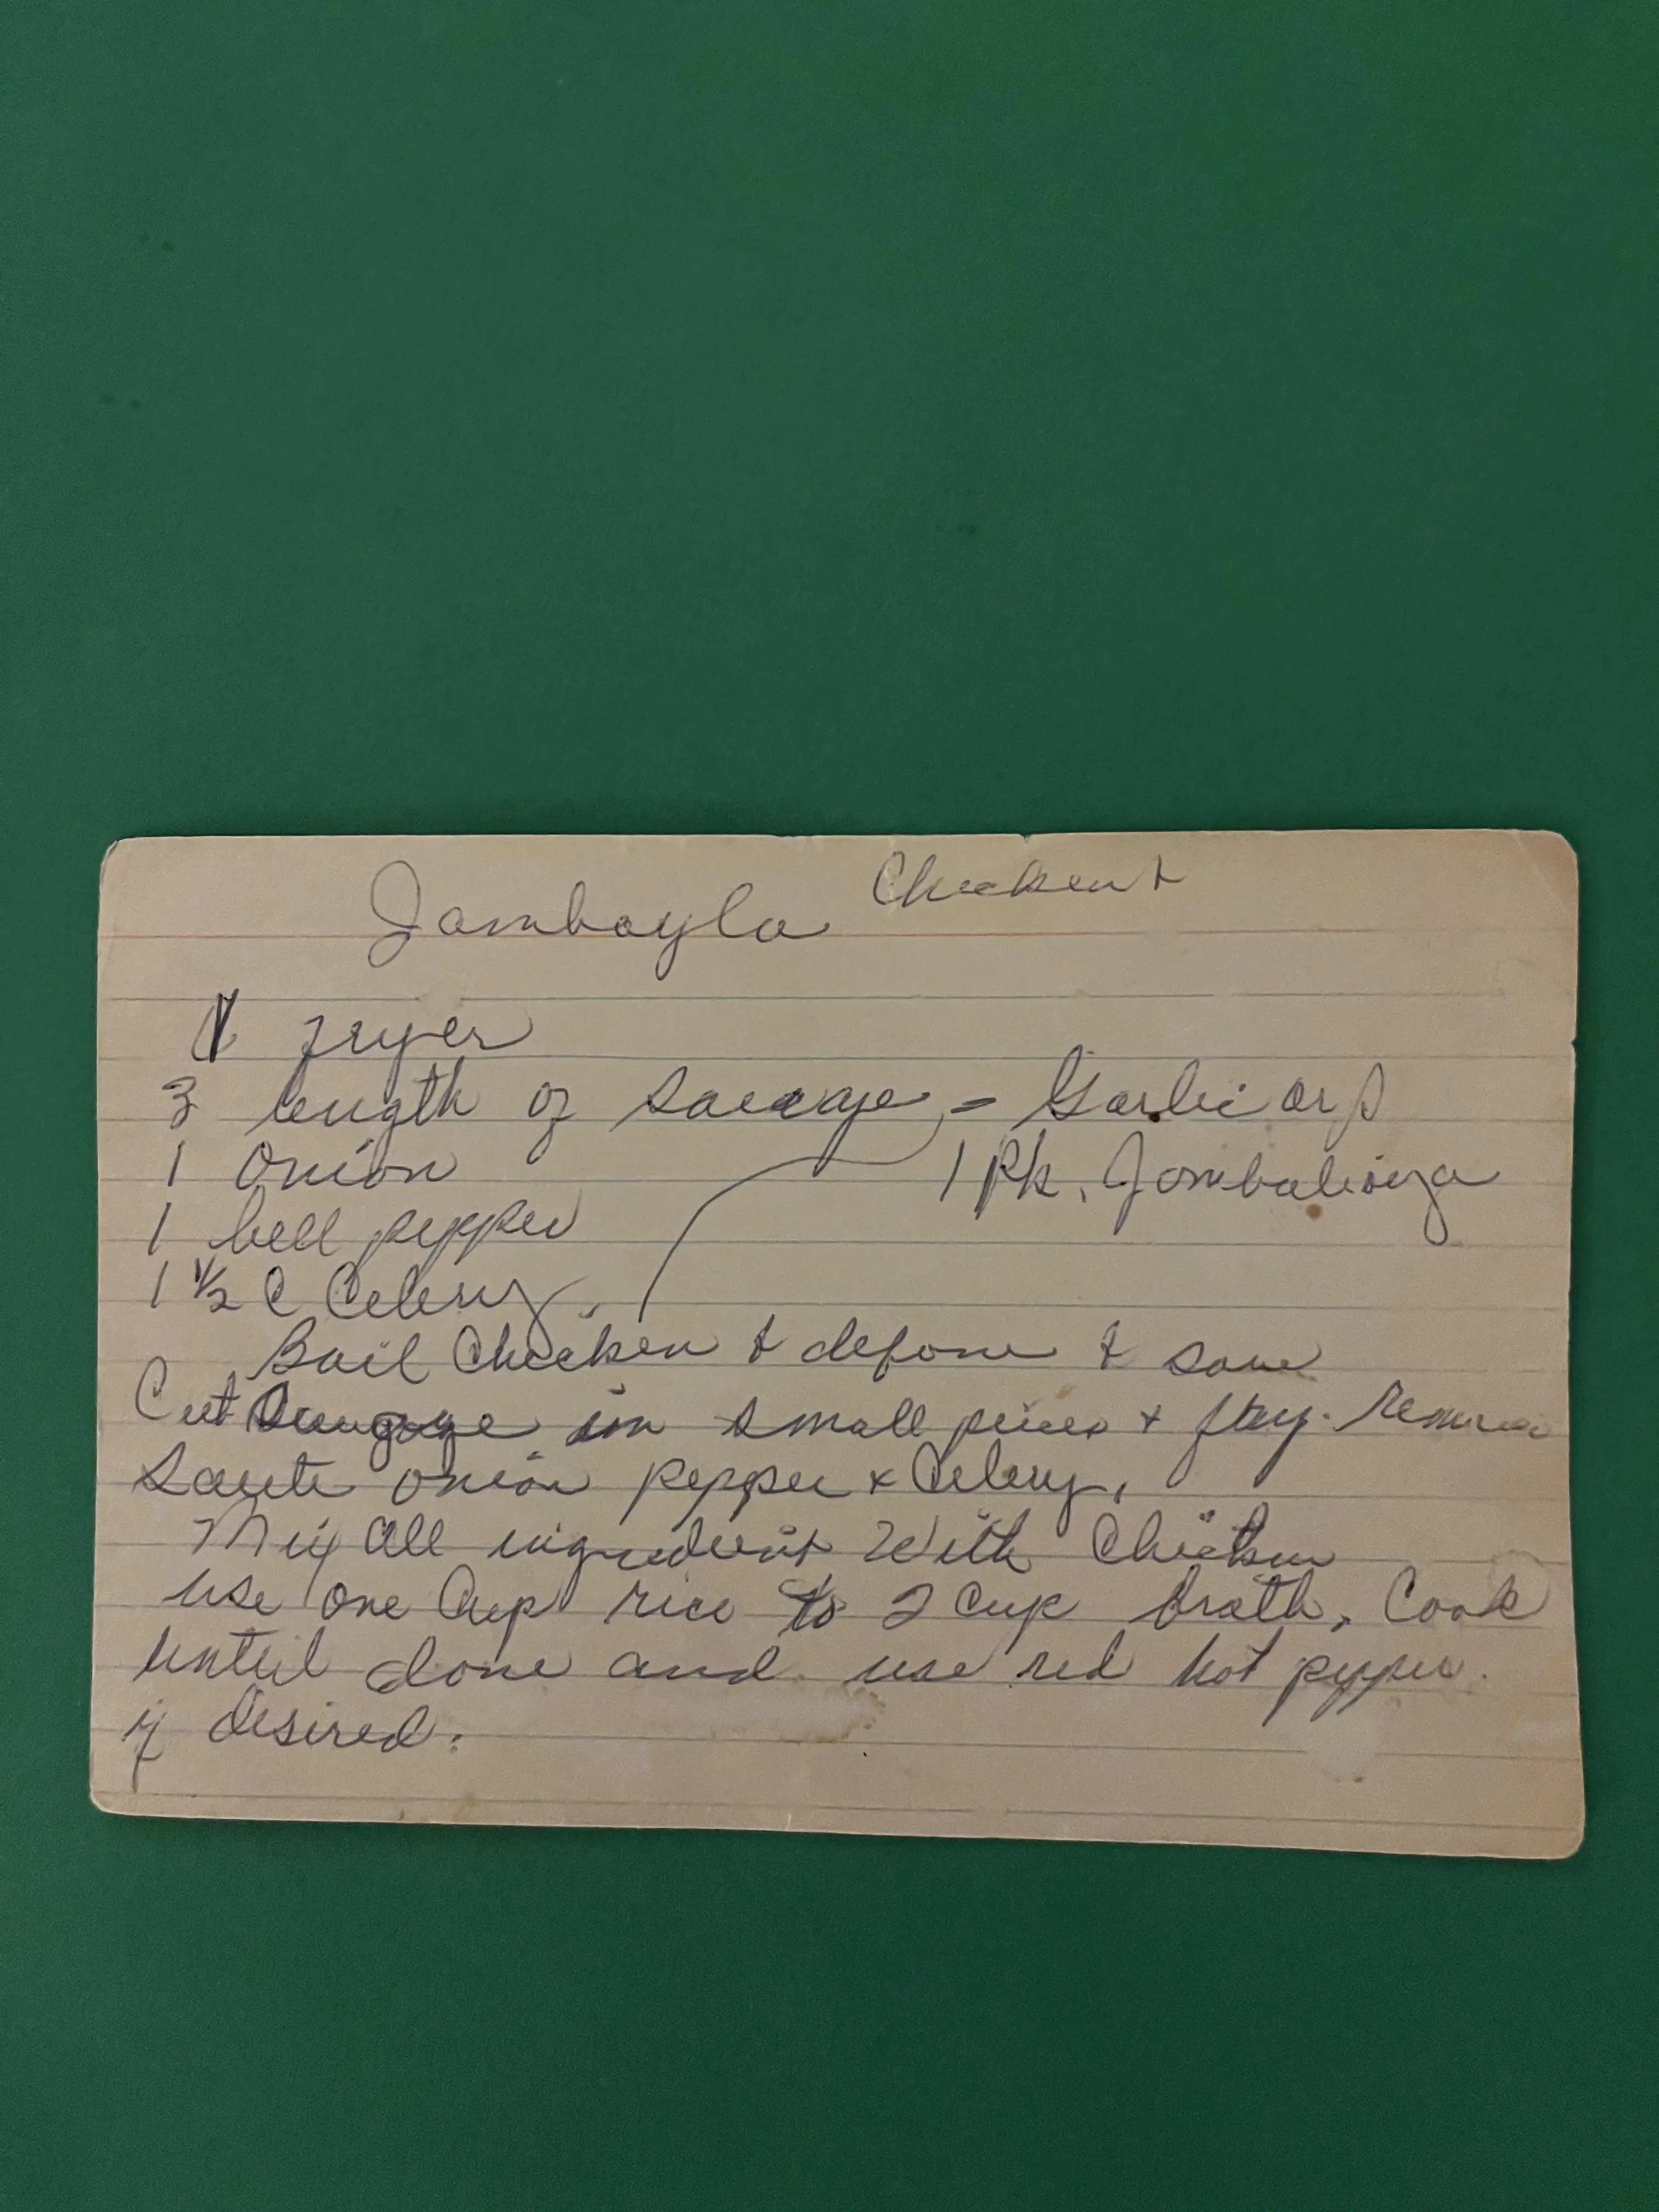 Jambayla Chicken +
1 fryer
3 length of sausage, - Garlic or
1 Onion
1 Pk. Jombalioya
1 bell pepper
1 1/2 C Celery.
Boil Chicken & debone & save
Cut Sausage in small pieces + fry. Remove
Saute onion pepper & Celery.
Mix all ingredient with Chicken
use one Cup rice to 2 cup broth, Cook
until done and use red hot pepper
if desired.